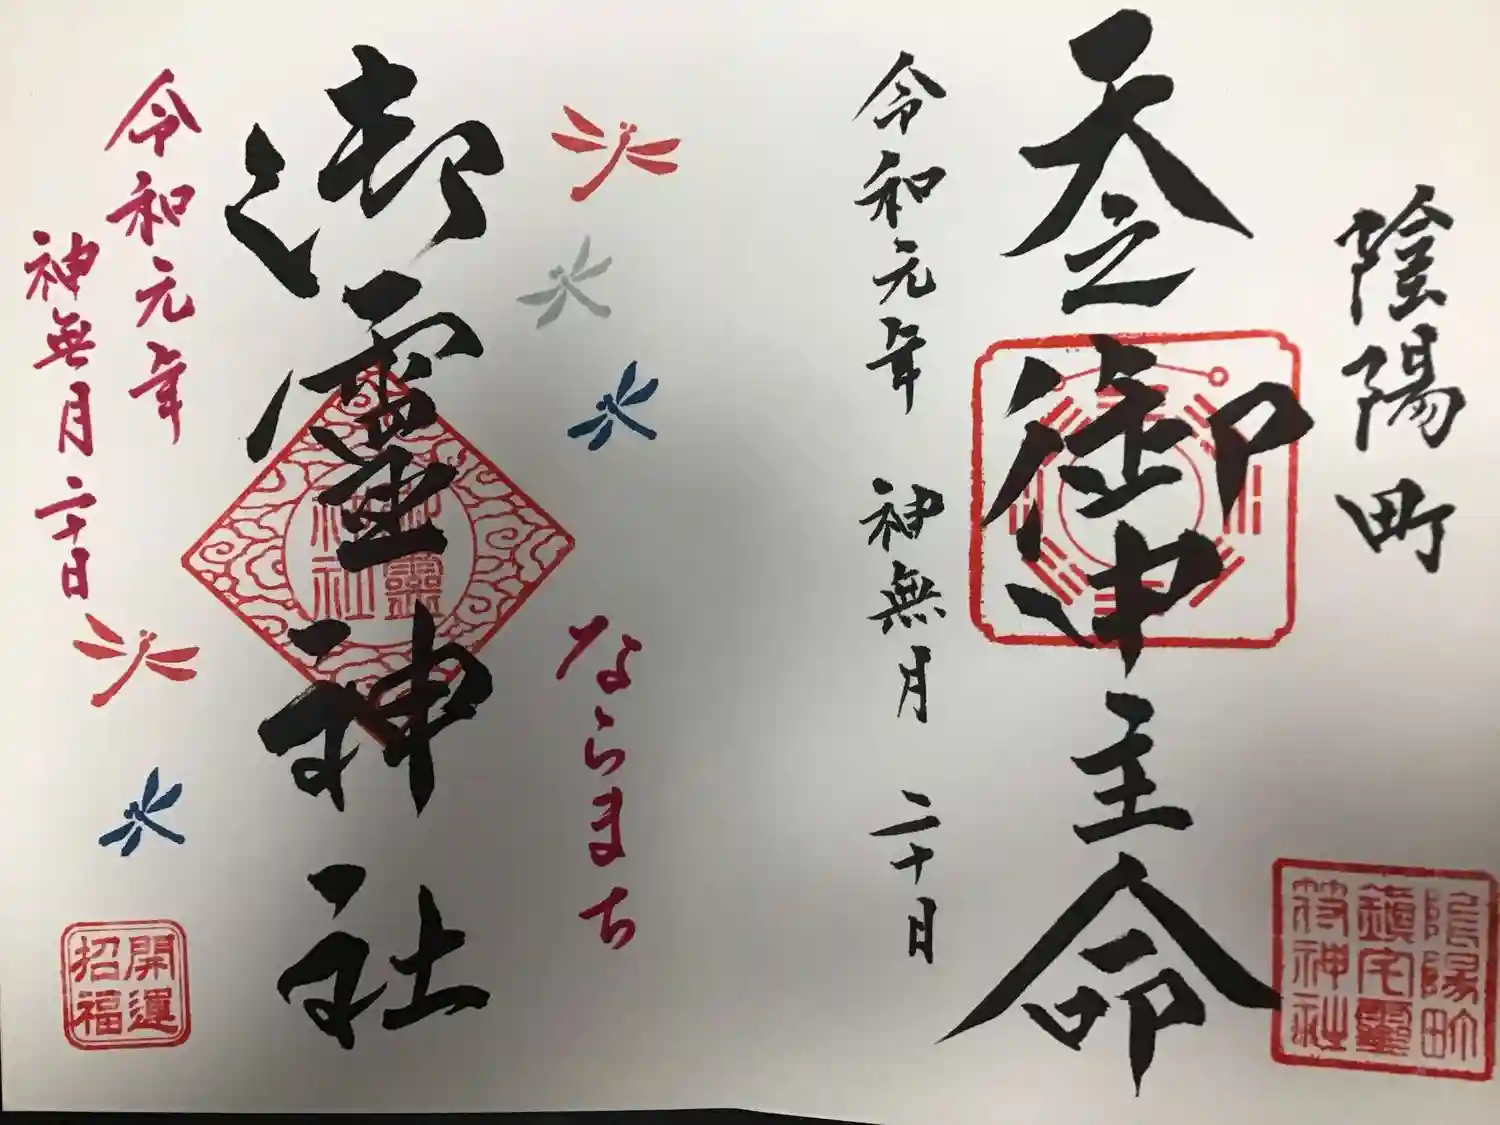 陰陽町
天之御中主命
令和元年 神無月 二十日
陰陽町
鎮宅霊
符神社
ならまち
御靈神社
御靈
神社
令和元年
神無月二十日
開運
招福